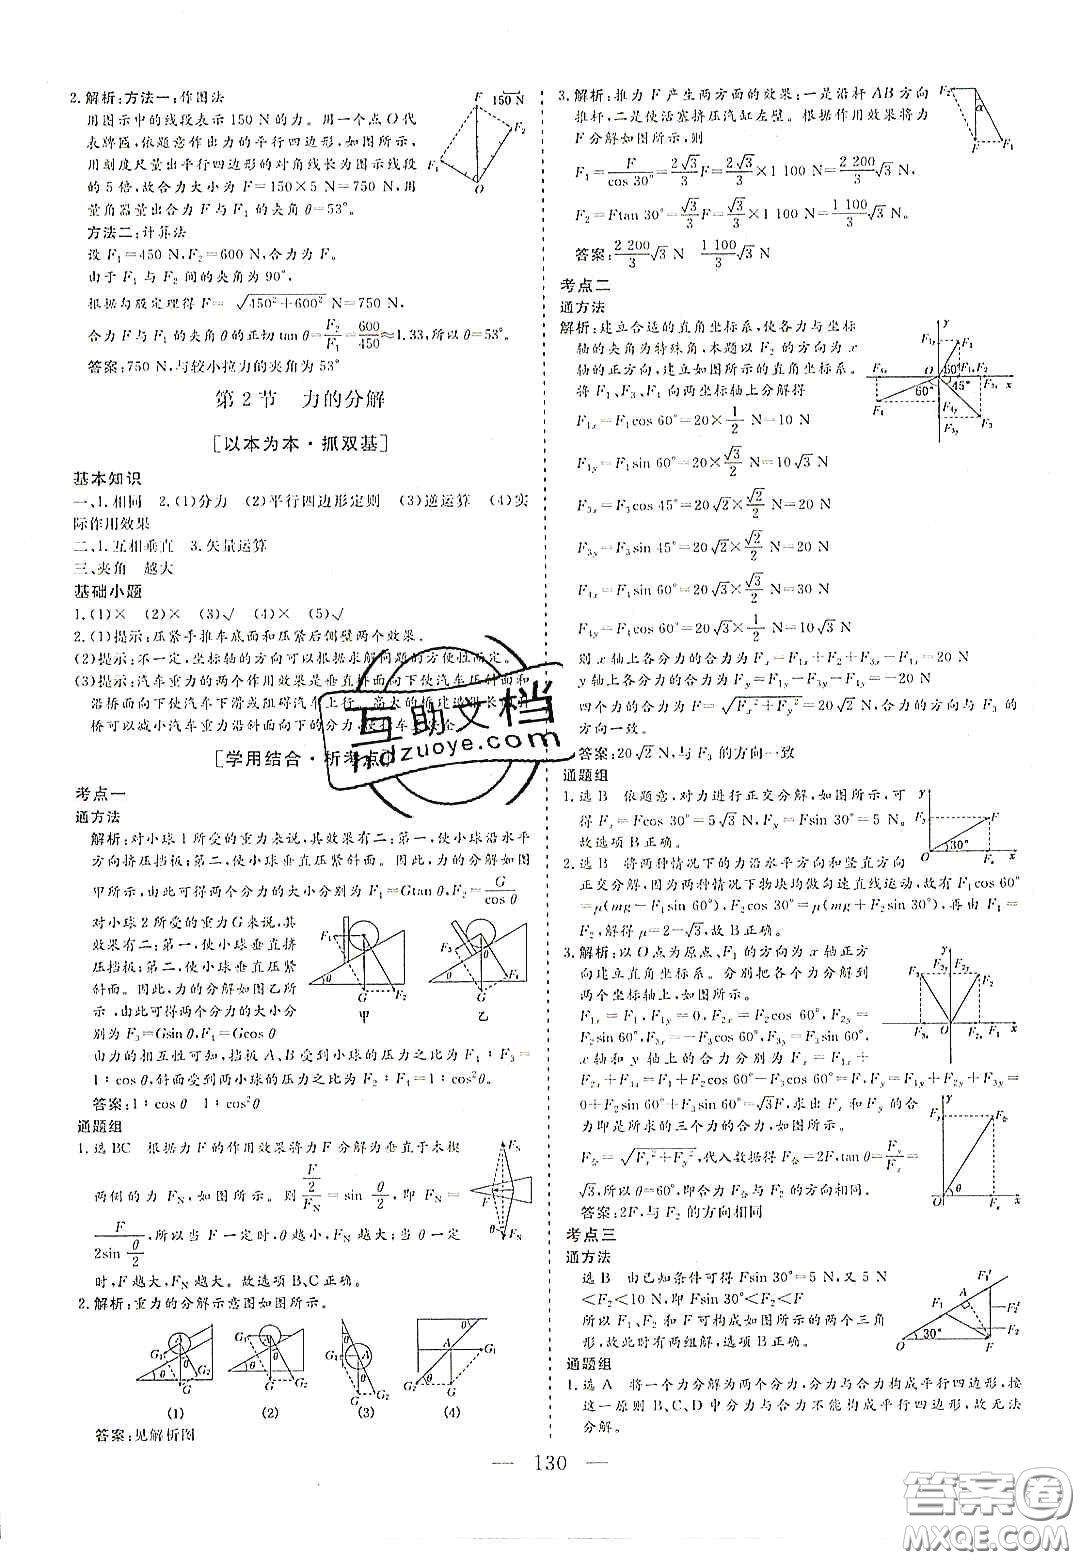 2.解析:方法一:作图法
用图示中的线段表示150 N的力。用一个点O代
表牌匾,依题意作出力的平行四边形,如图所示,
用刻度尺量出平行四边形的对角线长为图示线段
的5倍,故合力大小为F=150×5 N=750 N,用
量角器量出合力F与F₁的夹角θ=53°。
方法二:计算法
设F₁=450 N,F₂=600 N,合力为F。
由于F₁与F₂间的夹角为90°,
根据勾股定理得F=√(450²+600²) N=750 N,
合力F与F₁的夹角θ的正切tan θ=F₂/F₁=600/450≈1.33,所以θ=53°。
答案:750 N,与较小拉力的夹角为53°
第2节 力的分解
[以本为本·抓双基]
基本知识
一、1.相同 2.(1)分力 (2)平行四边形定则 (3)逆运算 (4)实
际作用效果
二、1.互相垂直 3.矢量运算
三、夹角 越大
基础小题
1.(1)× (2)× (3)√ (4)× (5)√
2.(1)提示:压紧手推车底面和压紧后侧壁两个效果。
(2)提示:不一定,坐标轴的方向可以根据解决问题的方便性而定。
(3)提示:汽车重力的两个作用效果是垂直桥面向下使汽车压斜面和
沿桥面向下使汽车下滑或阻碍汽车上行。高大的桥建造很长
桥可以减小汽车重力沿斜面向下的分力,使行车更安全。
[学用结合·析考点]
考点一
通方法
解析:对小球1所受的重力来说,其效果有二:第一,使小球沿水平
方向挤压挡板;第二,使小球垂直压紧斜面。因此,力的分解如图
甲所示,由此可得两个分力的大小分别为F₁=Gtan θ,F₂=G/cos θ
对小球2所受的重力G来说,其
效果有二:第一,使小球垂直挤
压挡板;第二,使小球垂直压紧
斜面。因此,力的分解如图乙所
示,由此可得两个分力的大小分
别为F₃=Gsin θ,F₄=Gcos θ
由力的相互性可知,挡板A、B受到小球的压力之比为F₁∶F₃=
1∶cos θ,斜面受到两小球的压力之比为F₂∶F₄=1∶cos²θ。
答案:1∶cos θ 1∶cos²θ
通题组
1.选BC 根据力F的作用效果将力F分解为垂直于木楔
两侧的力F_N,如图所示。则(F/2)/F_N=sin θ/2,即F_N=
F/(2sin θ/2),所以当F一定时,θ越小,F_N越大;当θ一定
时,F越大,F_N越大。故选项B、C正确。
2.解析:重力的分解示意图如图所示。
(1) (2) (3) (4)
答案:见解析图
3.解析:推力F产生两方面的效果:一是沿杆AB方向
推杆,二是使活塞挤压汽缸左壁。根据作用效果将力
F分解如图所示,则
F₁=F/cos 30°=2√3/3 F=2√3/3×1 100 N=2 200/3 √3 N,
F₂=Ftan 30°=√3/3 F=√3/3×1 100 N=1 100/3 √3 N。
答案:2 200/3 √3 N 1 100/3 √3 N
考点二
通方法
解析:建立合适的直角坐标系,使各力与坐标
轴的夹角为特殊角,本题以F₂的方向为x
轴的正方向,建立如图所示的直角坐标系,
将F₁、F₃、F₄向两坐标轴上分解得
F₁ₓ=F₁cos 60°=20×1/2 N=10 N
F₁y=F₁sin 60°=20×√3/2 N=10√3 N
F₃ₓ=F₃cos 45°=20√2×√2/2 N=20 N
F₃y=F₃sin 45°=20√2×√2/2 N=20 N
F₄ₓ=F₄sin 60°=20√3×√3/2 N=30 N
F₄y=F₄cos 60°=20√3×1/2 N=10√3 N
则x轴上各分力的合力Fₓ=F₁ₓ+F₂+F₃ₓ-F₄ₓ=20 N
y轴上各分力的合力F_y=F₁y-F₃y-F₄y=-20 N
四个力的合力F=√(Fₓ²+F_y²)=20√2 N,方向与F₃的
方向一致。
答案:20√2 N,与F₃的方向一致
通题组
1.选B 依题意,对力进行正交分解,如图所示,可
得Fₓ=Fcos 30°=5√3 N,F_y=Fsin 30°=5 N。
故选项B正确。
2.选B 将两种情况下的力沿水平方向和竖直方向
正交分解,因为两种情况下物块均做匀速直线运动,故有F₁cos 60°
=μ(mg-F₁sin 60°),F₂cos 30°=μ(mg+F₂sin 30°),再由F₁
=F₂,解得μ=2-√3,故B正确。
3.解析:以O点为原点、F₁的方向为x轴正方
向建立直角坐标系。分别把各个力分解到
两个坐标轴上,如图所示。
F₁ₓ=F₁,F₁y=0,F₂ₓ=F₂cos 60°,F₂y=
F₂sin 60°,F₃ₓ=-F₃cos 60°,F₃y=F₃sin 60°,
x轴和y轴上的合力分别为Fₓ=F₁ₓ+
F₂ₓ+F₃ₓ=F₁+F₂cos 60°-F₃cos 60°=F,F_y=F₁y+F₂y+F₃y=
0+F₂sin 60°+F₃sin 60°=√3F,求出Fₓ和F_y的合
力即是所求的三个力的合力,如图所示。
F合=√(Fₓ²+F_y²),代入数据得F合=2F,tan θ=F_y/Fₓ=
√3,所以θ=60°,即合力F合与F₂的方向相同。
答案:2F,与F₂的方向相同
考点三
通方法
选B 由已知条件可得Fsin 30°=5 N,又5 N
<F₂<10 N,即Fsin 30°<F₂<F
所以F₁、F₂和F可构成如图所示的两个三角
形,故此时有两组解,选项B正确。
通题组
1.选A 将一个力分解为两个分力,分力与合力构成平行四边形,按
这一原则B、C、D中分力与合力不能构成平行四边形,故无法
分解。
— 130 —
互助文档
hdzuoye.com
答案圈
MXQE.COM